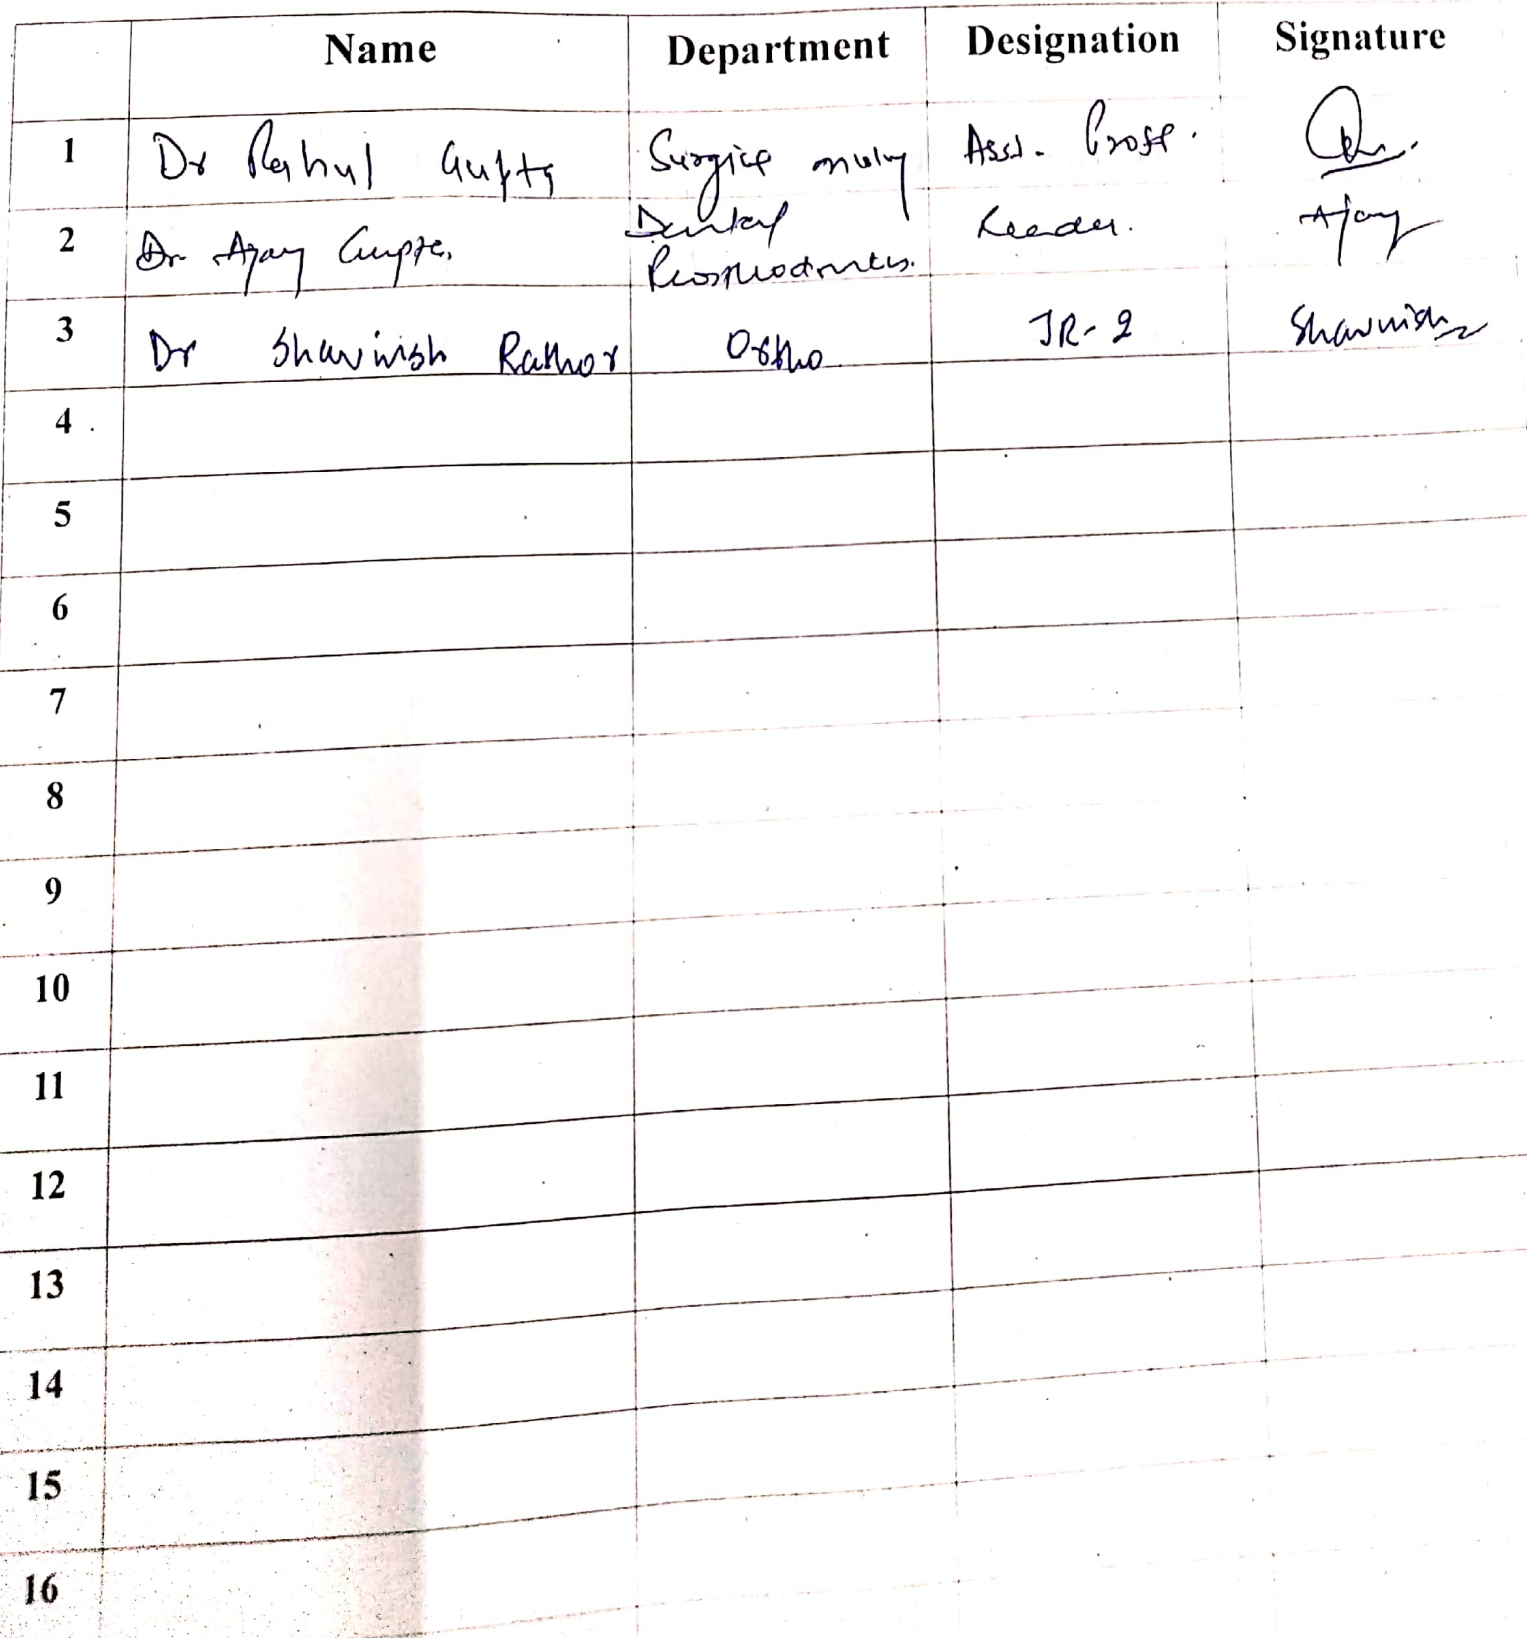 Name Department Designation Signature
1 Dr Rahul Gupta Surgical Asst. Proff.
2 Dr Ajay Gupta, Dental Reader. Ajay
Prosthodontics.
3 Dr Shavinish Rathor Ortho JR-2 Shavnish
4
5
6
7
8
9
10
11
12
13
14
15
16